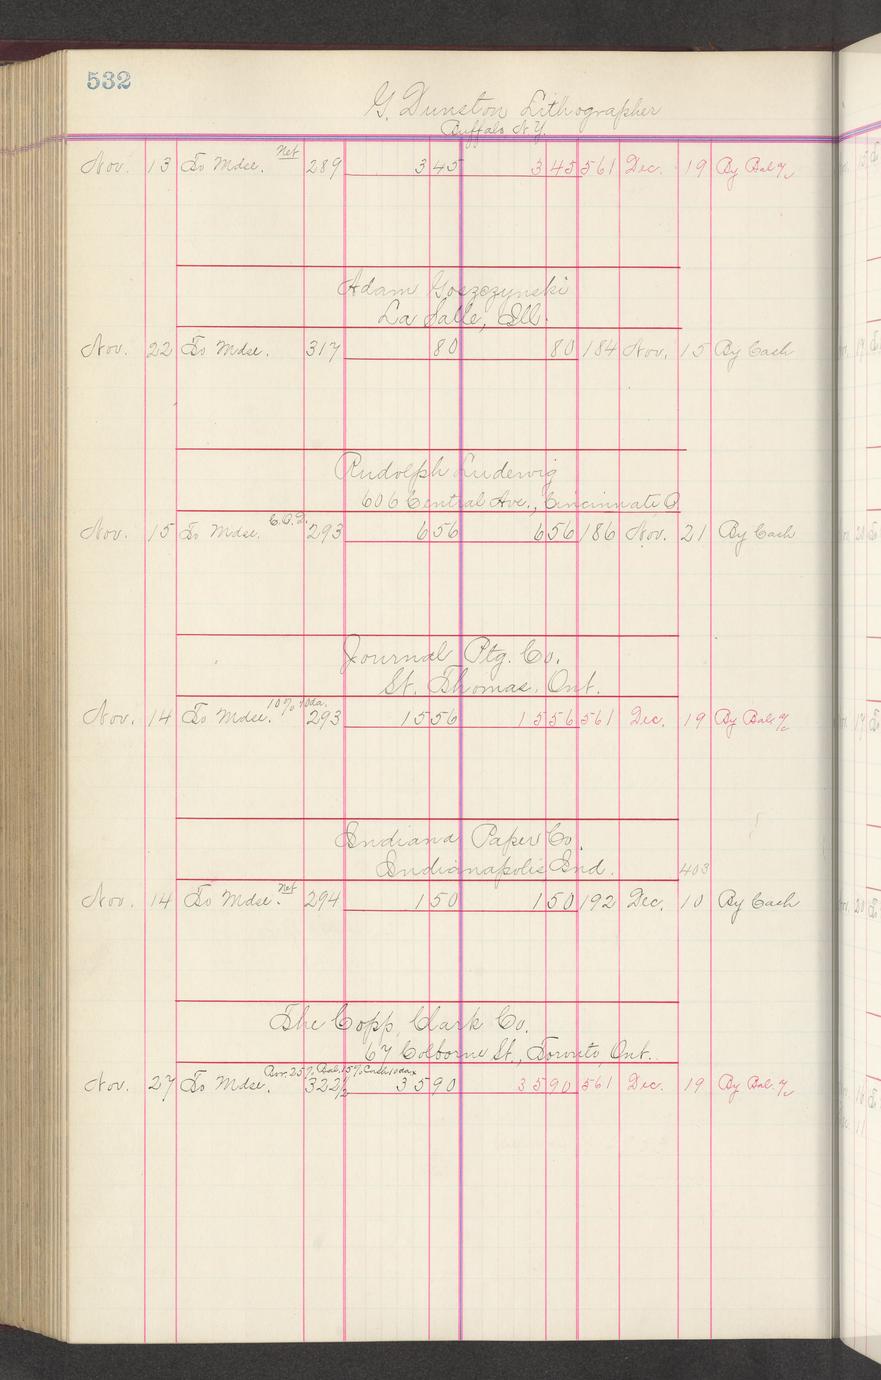 532
G. Dunston Lithographer
Buffalo, N.Y.
Nov. 13 To Mdse. Net 289 3 45 3 45 561 Dec. 19 By Bal a/c
Adam Goszczynski
La Salle, Ill.
Nov. 22 To Mdse. 317 80 80 184 Nov. 15 By Cash
Rudolph Ludewig
606 Central Ave., Cincinnati O
Nov. 15 To Mdse. C.O.D. 293 6 56 6 56 186 Nov. 21 By Cash
Journal Ptg. Co.
St. Thomas, Ont.
Nov. 14 To Mdse. 10% 10da. 293 15 56 15 56 561 Dec. 19 By Bal a/c
Indiana Paper Co.
Indianapolis Ind. 403
Nov. 14 To Mdse. Net 294 1 50 1 50 192 Dec. 10 By Cash
The Copp, Clark Co.
67 Colborne St., Toronto, Ont.
Nov. 27 To Mdse. 25% Bal. 15% Cash 10da 322½ 35 90 35 90 561 Dec. 19 By Bal. a/c